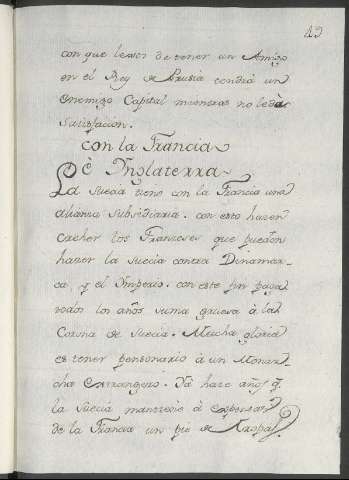 45
con que lexos de tener un Amigo
en el Rey de Prusia tendrá un
enemigo Capital mientras no le dà
satisfacion.
Con la Francia
è Ynglaterra
La Suecia tiene con la Francia una
alianza Subsidiaria. con esto hazen
creher los Franceses que pueden
hazer la Suecia contra Dinamar-
ca, y el Ymperio. con este fin paga
todos los años suma gruesa á la
Corona de Suecia. Mucha gloria
es tener pensionario à un Monar-
cha extrangero. Ya haze años q.
la Suecia mantiene à expensas
de la Francia un pie de Tropas